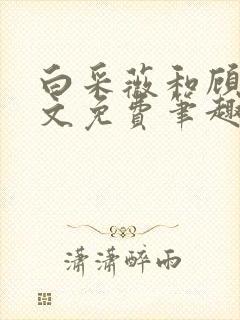 白采薇和顾
文免费笔趣
潇潇醉雨